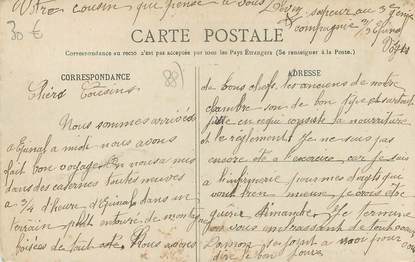 Votre cousin qui pense à vous
Sapeur au 3e Génie
compagnie Epinal
Vosges
30 €
CARTE POSTALE
Correspondance au recto n'est pas acceptée par tous les Pays Étrangers (Se renseigner à la Poste.)
CORRESPONDANCE
ADRESSE
88
Chers Cousins
Nous sommes arrivés
a Epinal a midi nous avons
fait bon voyage on nous a mis
dans des casernes toutes neuves
a 3/4 d'heure d'Epinal dans un
terrain entouré de montagnes
boisées de tout coté. Nous avons
de bons chefs, des anciens de notre
chambre son de bon type et surtout
en ce qui consiste la nourriture
et le reglement. Je ne suis pas
encore été a l'exercice car je suis
a l'infirmerie pour mes doigts qui
vont bien mieux je vais être
guéri dimanche. Je termine
en vous embrassant de tout cœur
se joint a moi pour
dire le bon jour